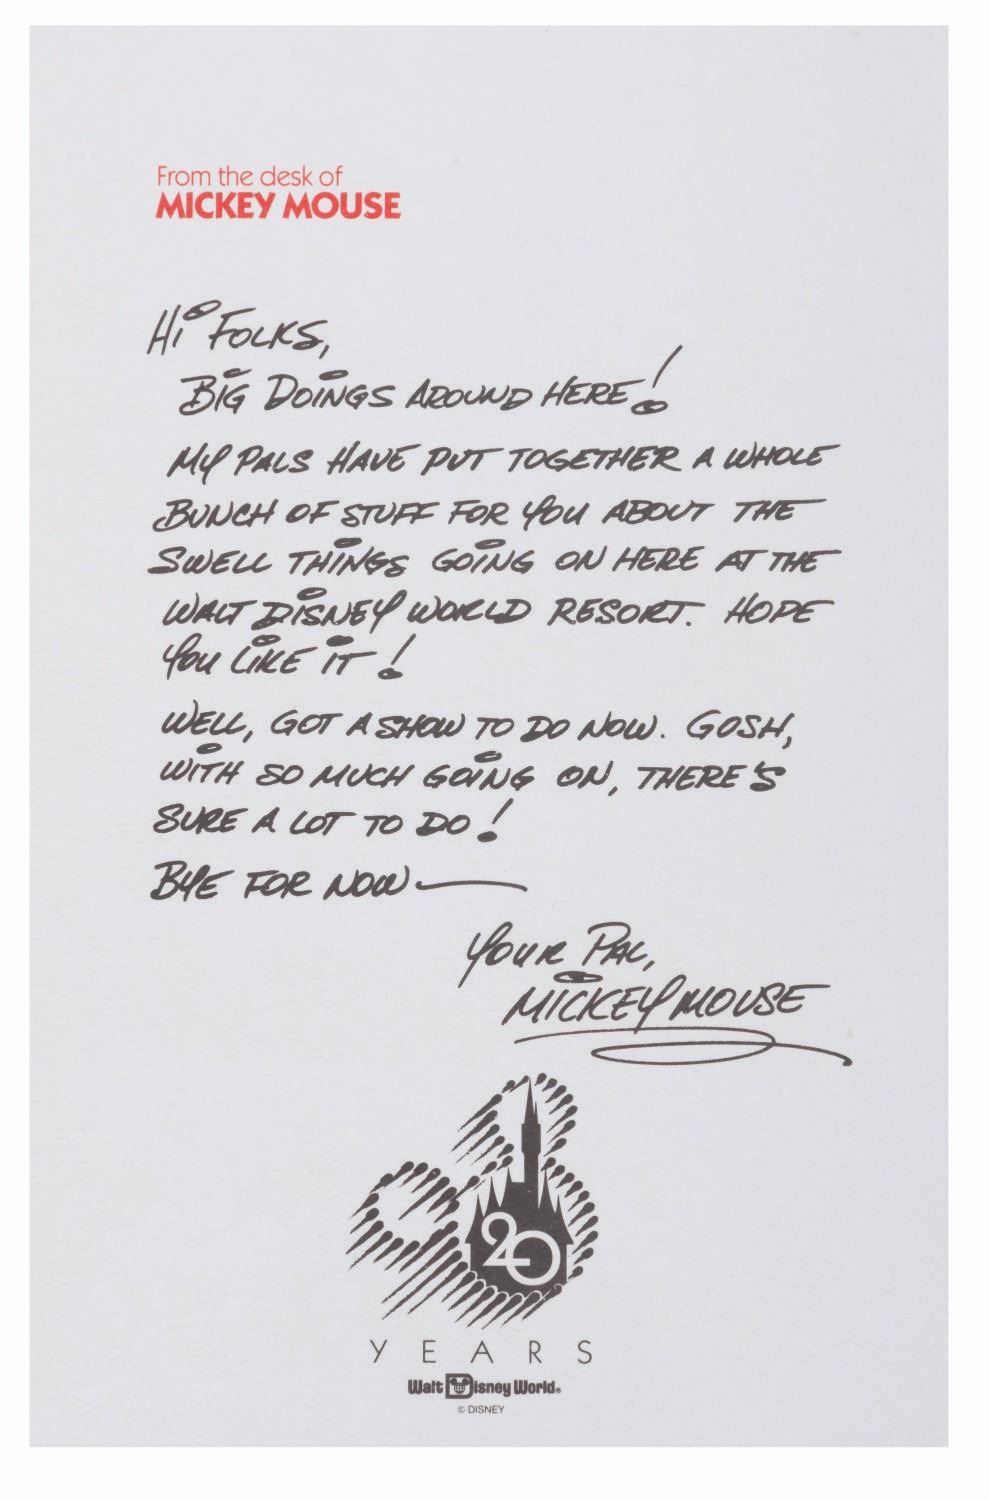 From the desk of
MICKEY MOUSE
HI FOLKS,
BIG DOINGS AROUND HERE!
MY PALS HAVE PUT TOGETHER A WHOLE
BUNCH OF STUFF FOR YOU ABOUT THE
SWELL THINGS GOING ON HERE AT THE
WALT DISNEY WORLD RESORT. HOPE
YOU LIKE IT!
WELL, GOT A SHOW TO DO NOW. GOSH,
WITH SO MUCH GOING ON, THERE'S
SURE A LOT TO DO!
BYE FOR NOW—
YOUR PAL,
MICKEY MOUSE
20
YEARS
Walt Disney World®
© DISNEY